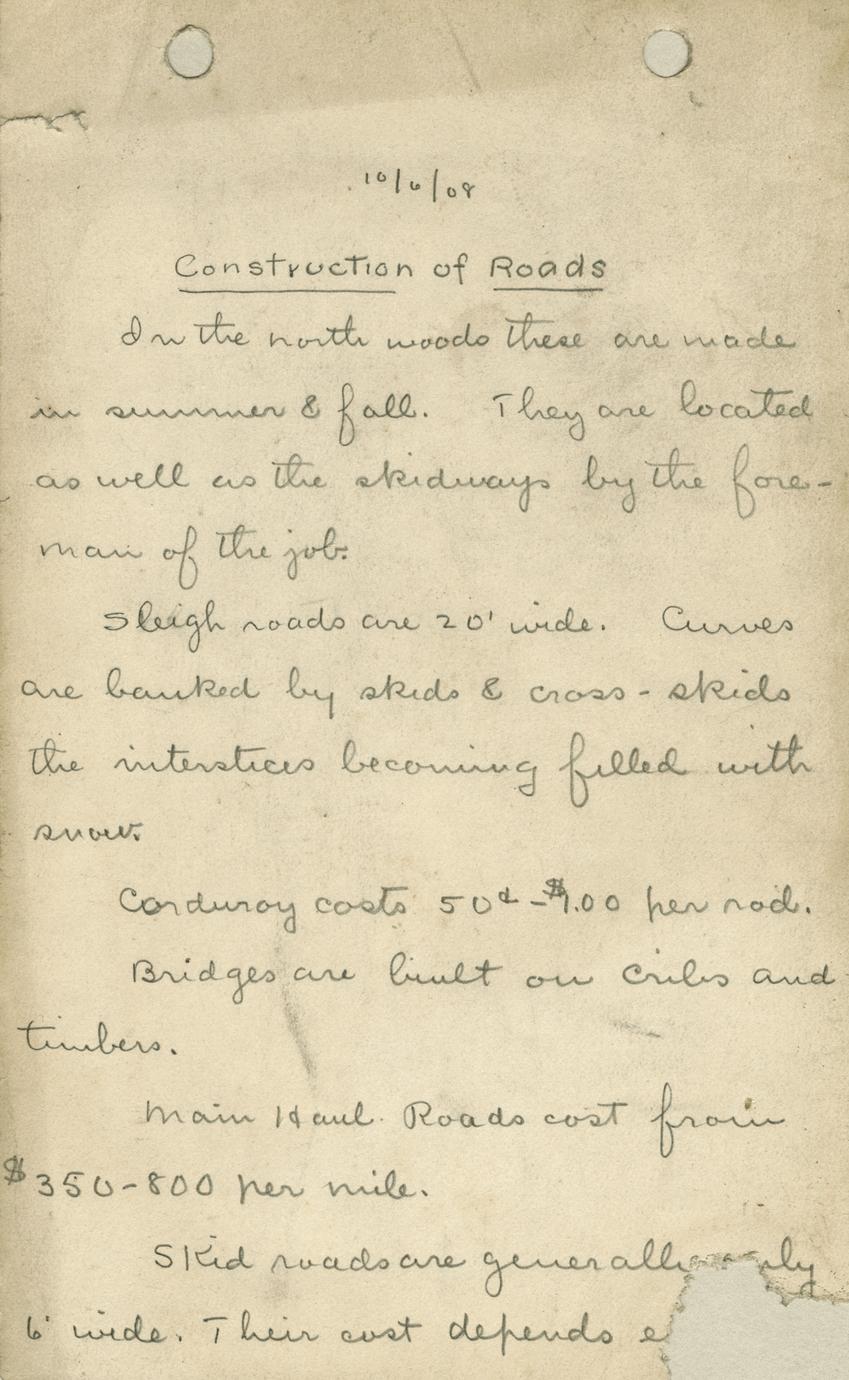 10/6/08
Construction of Roads
In the north woods these are made
in summer & fall. They are located
as well as the skidways by the fore-
man of the job.
Sleigh roads are 20' wide. Curves
are banked by skids & cross-skids
the interstices becoming filled with
snow.
Corduroy costs 50¢-$1.00 per rod.
Bridges are built on cribs and
timbers.
Main Haul Roads cost from
$350-800 per mile.
Skid roads are generally
6' wide. Their cost depends